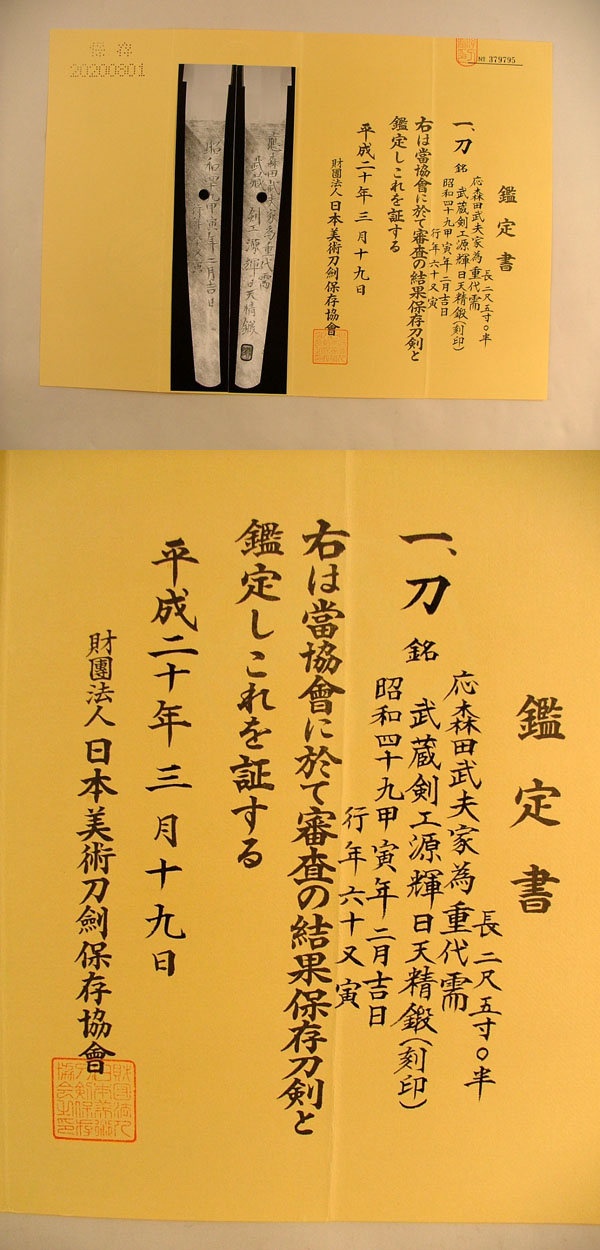 保存
20200801
No 379795
鑑定書
長二尺五寸〇半
一、刀 銘
応森田武夫家為重代需
武蔵剣工源輝日天精鍛(刻印)
昭和四十九甲寅年二月吉日
行年六十又寅
右は當協會に於て審査の結果保存刀剣と
鑑定しこれを証する
平成二十年三月十九日
財團法人日本美術刀劍保存協會
應森田武夫家為重代需
武蔵剣工源輝日天精鍛
昭和四十九甲寅年二月吉日
鑑定書
長二尺五寸〇半
一、刀 銘
応森田武夫家為重代需
武蔵剣工源輝日天精鍛(刻印)
昭和四十九甲寅年二月吉日
行年六十又寅
右は當協會に於て審査の結果保存刀剣と
鑑定しこれを証する
平成二十年三月十九日
財團法人日本美術刀劍保存協會